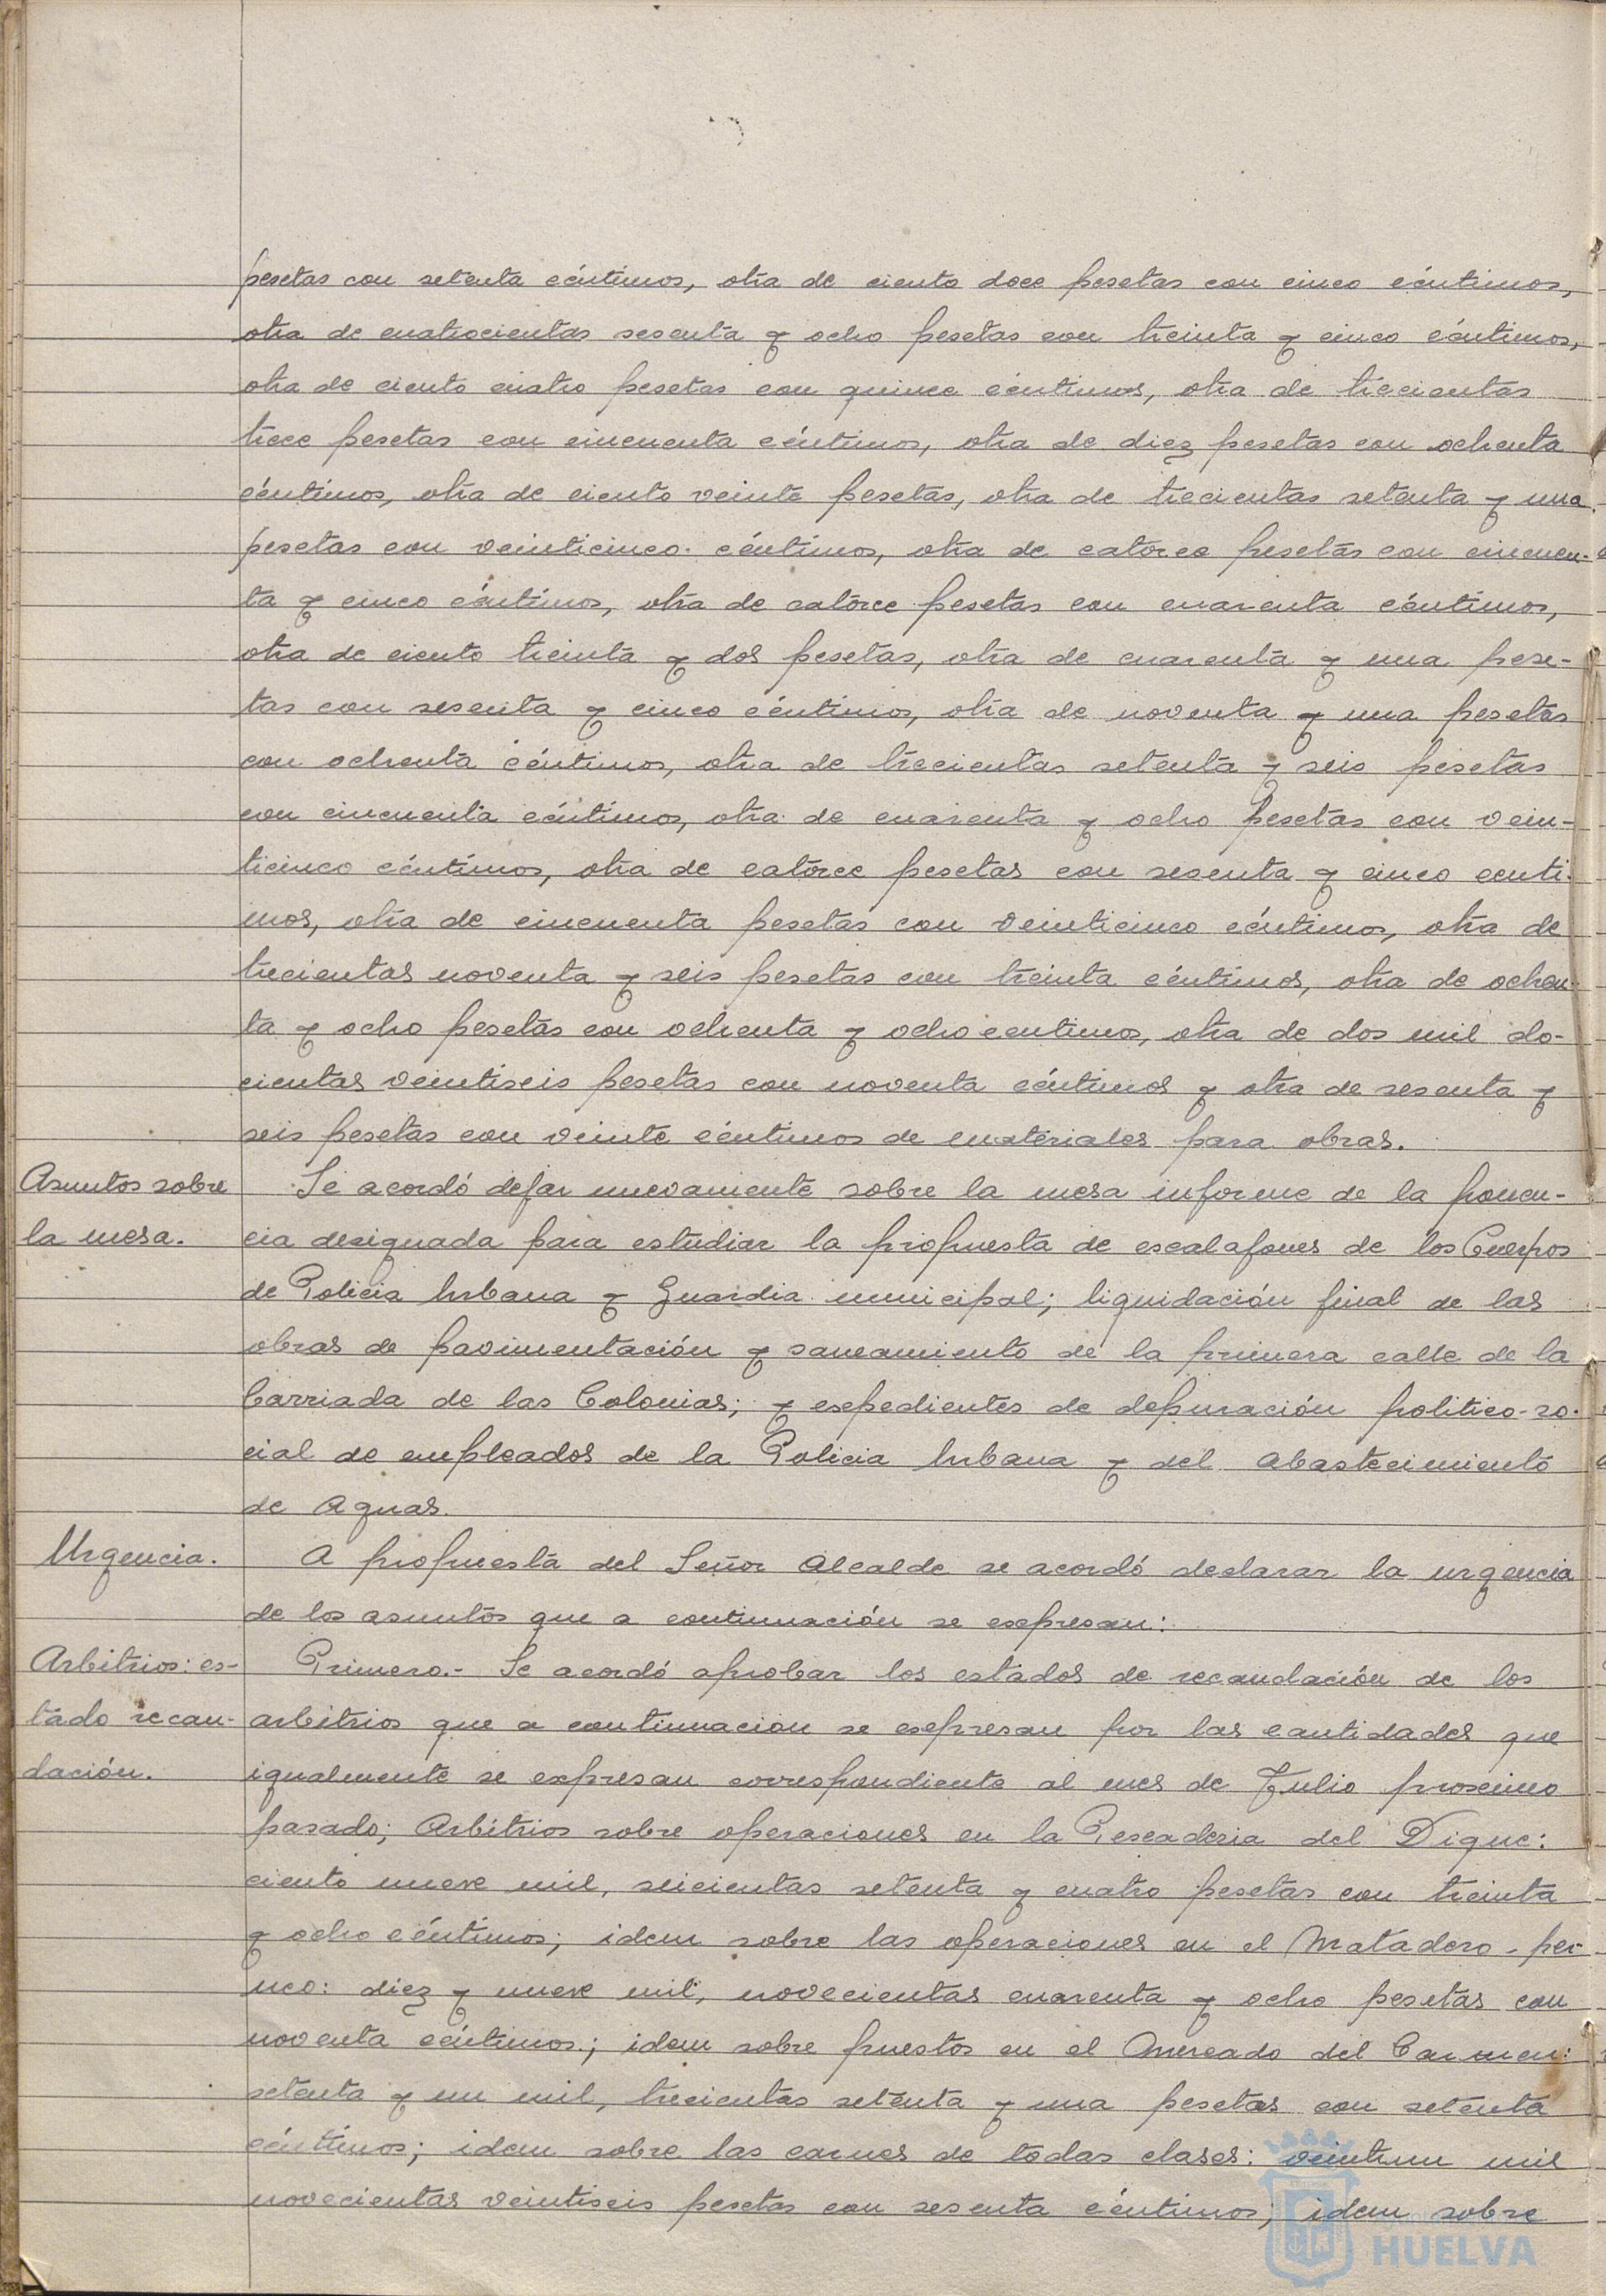 pesetas con setenta céntimos, otra de ciento doce pesetas con cinco céntimos,
otra de cuatrocientas sesenta y ocho pesetas con treinta y cinco céntimos,
otra de ciento cuatro pesetas con quince céntimos, otra de trecientas
trece pesetas con cincuenta céntimos, otra de diez pesetas con ochenta
céntimos, otra de ciento veinte pesetas, otra de trecientas setenta y una
pesetas con veinticinco céntimos, otra de catorce pesetas con cincuen-
ta y cinco céntimos, otra de catorce pesetas con cuarenta céntimos,
otra de ciento treinta y dos pesetas, otra de cuarenta y una pese-
tas con sesenta y cinco céntimos, otra de noventa y una pesetas
con ochenta céntimos, otra de trecientas setenta y seis pesetas
con cincuenta céntimos, otra de cuarenta y ocho pesetas con vein-
ticinco céntimos, otra de catorce pesetas con sesenta y cinco centi-
mos, otra de cincuenta pesetas con veinticinco céntimos, otra de
trecientas noventa y seis pesetas con treinta céntimos, otra de ochen-
ta y ocho pesetas con ochenta y ocho centimos, otra de dos mil do-
cientas veintiseis pesetas con noventa céntimos y otra de sesenta y
seis pesetas con veinte céntimos de materiales para obras.
Asuntos sobre
la mesa.
Se acordó dejar nuevamente sobre la mesa informe de la ponen-
cia designada para estudiar la propuesta de escalafones de los Cuerpos
de Policia Urbana y Guardia municipal; liquidación final de las
obras de pavimentación y saneamiento de la primera calle de la
Barriada de las Colonias; y expedientes de depuración politico-so-
cial de empleados de la Policia Urbana y del Abastecimiento
de Aguas.
Urgencia.
A propuesta del Señor Alcalde se acordó declarar la urgencia
de los asuntos que a continuación se expresan:
Arbitrios: es-
tado recau-
dación.
Primero.- Se acordó aprobar los estados de recaudación de los
arbitrios que a continuacion se expresan por las cantidades que
igualmente se expresan correspondiente al mes de Julio proximo
pasado; Arbitrios sobre operaciones en la Pescaderia del Dique:
ciento nueve mil, seicientas setenta y cuatro pesetas con treinta
y ocho céntimos; idem sobre las operaciones en el Matadero-per-
neo: diez y nueve mil, novecientas cuarenta y ocho pesetas con
noventa céntimos; idem sobre puestos en el Mercado del Carmen:
setenta y un mil, trecientas setenta y una pesetas con setenta
céntimos; idem sobre las carnes de todas clases: veintiun mil
novecientas veintiseis pesetas con sesenta céntimos; idem sobre
HUELVA